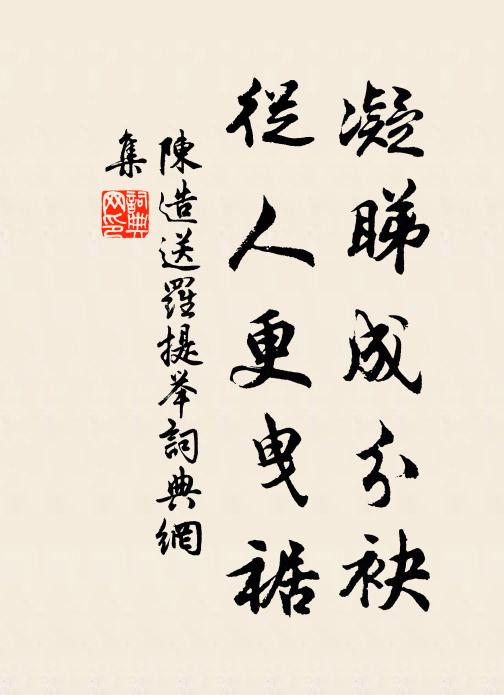 凝睇成分袂
從人更曳裾
陳造送羅提举詞典網
集
詞典網印